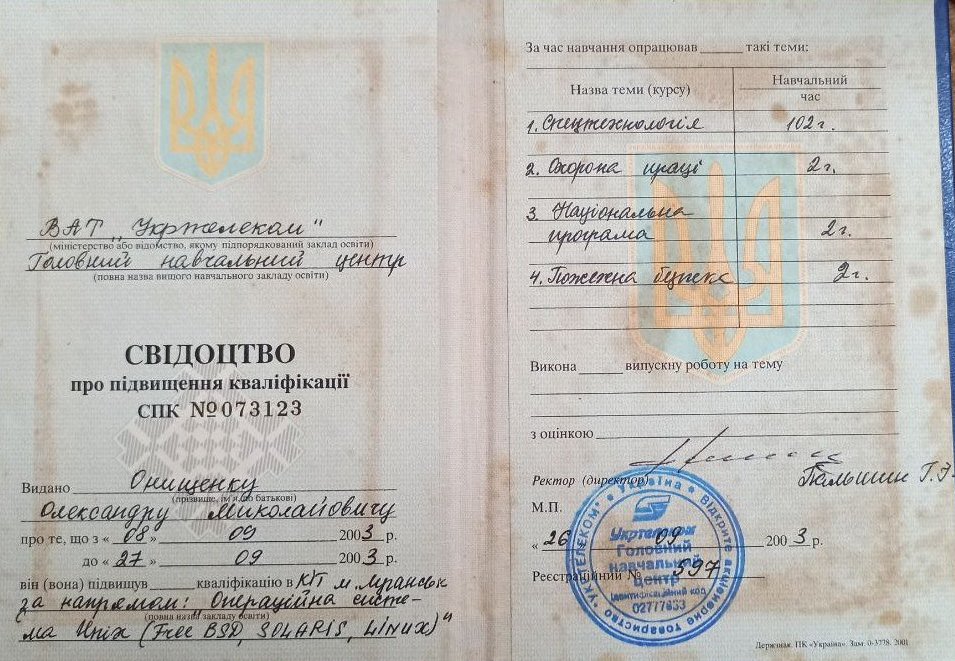 ВАТ „Укртелеком"
(міністерство або відомство, якому підпорядкований заклад освіти)
Головний навчальний центр
(повна назва вищого навчального закладу освіти)
СВІДОЦТВО
про підвищення кваліфікації
СПК №073123
Видано Онищенку
(прізвище, ім'я, по батькові)
Олександру Миколайовичу
про те, що з «08» 09 2003 р.
до «27» 09 2003 р.
він (вона) підвищив кваліфікацію в КП м. Луганськ
за напрямом: „Операційна систе-
(повна назва закладу освіти)
ма Unix (Free BSD, SOLARIS, LINUX)"
За час навчання опрацював такі теми:
Назва теми (курсу)
Навчальний
час
1. Спецтехнологія 102 г.
2. Охорона праці 2 г.
3. Національна
програма 2 г.
4. Пожежна безпека 2 г.
Викона випускну роботу на тему
з оцінкою
Ректор (директор)
М.П.
«26» 09 2003 р.
Реєстраційний № 597
Україна
Відкрите акціонерне товариство "УКРТЕЛЕКОМ"
Укртелеком
Головний
навчальний
центр
Ідентифікаційний код
Держзнак. ПК «Україна». Зам. 0-3778. 2001